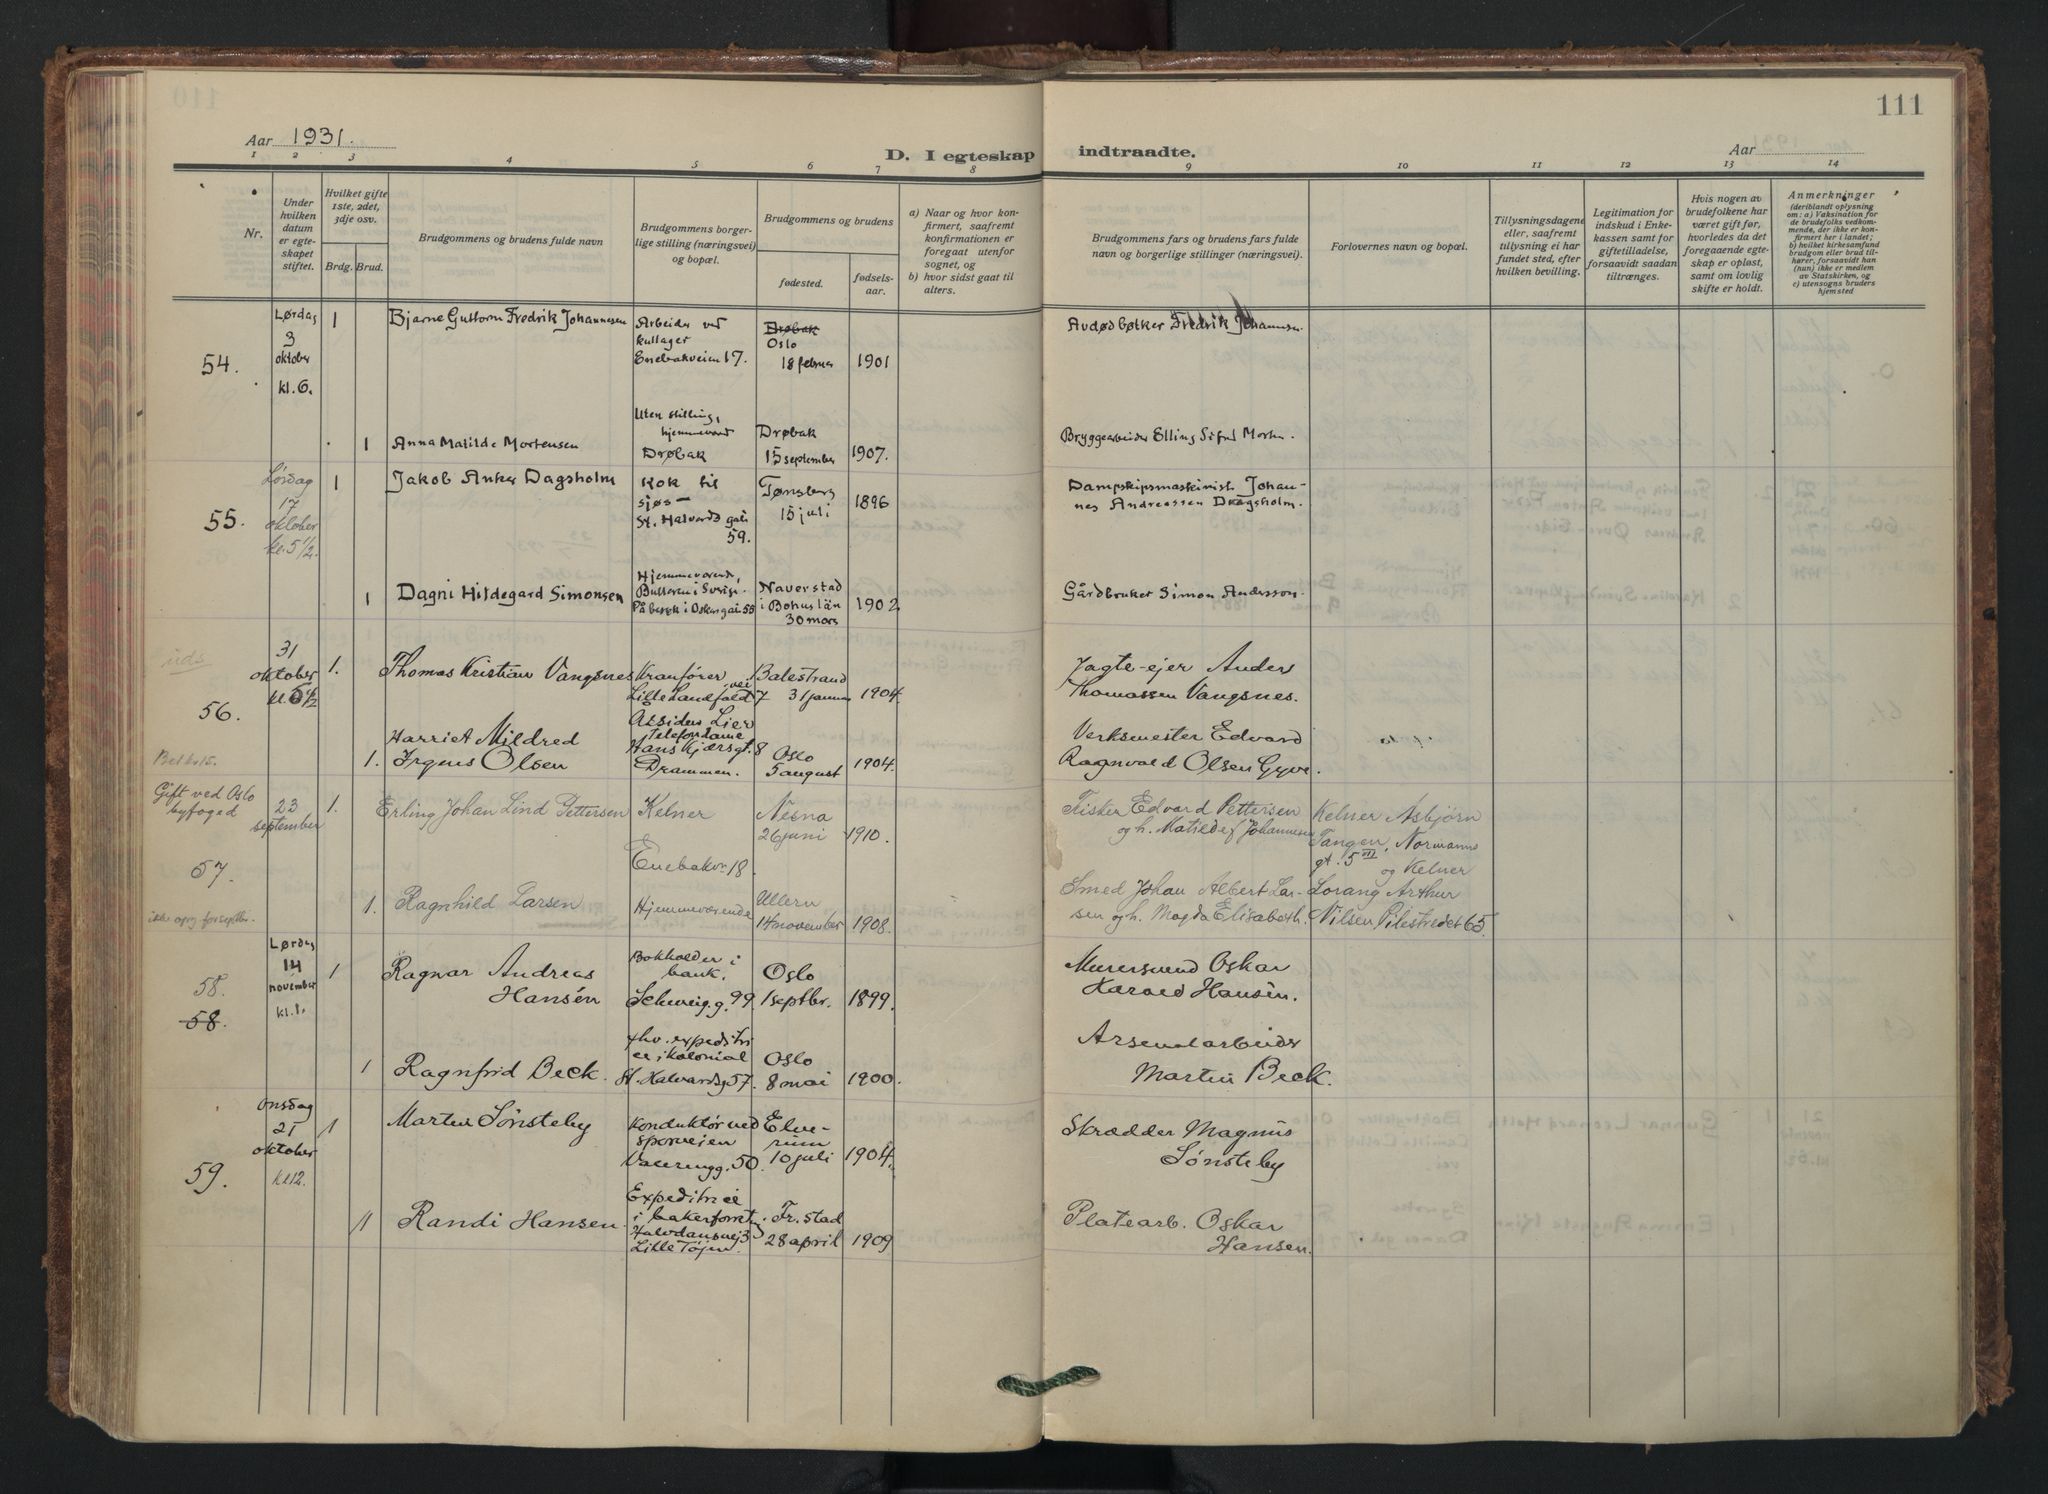 111
Aar 1931.
D. I egteskap indtraadte.
Aar
1 2 3 4 5 6 7 8 9 10 11 12 13 14
Nr.
Under hvilken datum er egteskapet stiftet.
Hvilket gifte 1ste, 2det, 3dje osv.
Brdg. Brud.
Brudgommens og brudens fulde navn
Brudgommens borgerlige stilling (næringsvei) og bopæl.
Brudgommens og brudens
fødested.
fødselsaar.
a) Naar og hvor konfirmert, saafremt konfirmationen er foregaat utenfor sognet, og
b) hvor sidst gaat til alters.
Brudgommens fars og brudens fars fulde navn og borgerlige stillinger (næringsvei).
Forlovernes navn og bopæl.
Tillysningsdagene eller, saafremt tillysning ei har fundet sted, efter hvilken bevilling.
Legitimation for indskud i Enkekassen samt for giftetilladelse, forsaavidt saadan tiltrænges.
Hvis nogen av brudefolkene har været gift før, hvorledes da det foregaaende egteskap er opløst, samt om lovlig skifte er holdt.
Anmerkninger
(deriblandt oplysning om: a) Vaksination for de brudefolks vedkommende, der ikke er konfirmert her i landet; b) hvilket kirkesamfund brudgom eller brud tilhører, forsaavidt han (hun) ikke er medlem av Statskirken, og c) utensogns bruders hjemsted
54.
Lørdag 3 oktober kl. 6.
1
Bjarne Guttorm Fredrik Johannesen
Arbeider ved kullager Enebakveien 17.
Drøbak
Oslo
18 februar
1901
Avdød bøtker Fredrik Johannesen.
1
Anna Matilde Mortensen
Uten stilling, hjemmevær. Drøbak
Drøbak
15 september
1907.
Bryggearbeider Elling Morten.
55.
Lørdag 17 oktober kl. 5 1/2.
1
Jakob Anker Dagsholm
Kok til sjøs –
St. Halvards gate 59.
Tønsberg
15 juli
1896
Dampskipsmaskinist Johannes Andreassen Dragsholm.
1
Dagni Hildegard Simonsen
Hjemmeværende, Bullaren i Sverige.
På besøk i Oskersgate 55
Naverstad i Bohuslän
30 mars
1902
Gårdbruker Simon Andersson.
uds
56.
31 oktober kl. 6 1/2
1.
Thomas Kristian Vangsnes
Kranfører, Lille Landfaldvei 7
Balestrand
31 januar
1904.
Jagte-ejer Anders Thomassen Vangsnes.
1.
Harriet Mildred Irgens Olsen
Assiden Lier
Telefondame
Hans Kjærsgt. 8 Drammen.
Oslo
5 august
1904.
Verksmester Edvard Ragnvald Olsen Gyve.
Gift ved Oslo byfoged
57.
23 september
1.
Erling Johan Lind Pettersen
Kelner
Enebakv. 18
Nesna
26 juni
1910.
Fisker Edvard Pettersen og h. Matilde f. Johannesen
Kelner Asbjørn Tangen, Normanns gt. 5 III og Kelner
ikke opg. for septbr.
1.
Ragnhild Larsen
Hjemmeværende
Ullern
14 november
1908.
Smed Johan Albert Larsen og h. Magda Elisabeth.
Lorang Arthur Nilsen Pilestredet 65.
58.
58.
Lørdag 14 november kl. 1.
1
Ragnar Andreas Hansén
Bokholder i bank.
Schweig. g. 99.
Oslo
1 septbr.
1899.
Murersvend Oskar Harald Hansén.
1
Ragnfrid Beck.
fhv. expeditrice i kolonial
St. Halvardsg 57.
Oslo
8 mai
1900.
Arsenalarbeider Martin Beck.
59.
Onsdag 21 oktober kl 12.
1
Martin Sønsteby
Konduktør ved sporveien
Vaalerengg. 50.
Elverum
10 juli
1904.
Skrædder Magnus Sønsteby
1
Randi Hansen.
Expeditrice i bakerforretng.
Halvdansvej 3 Lille Tøjen.
Fr. stad
28 april
1909
Platearb. Oskar Hansen.